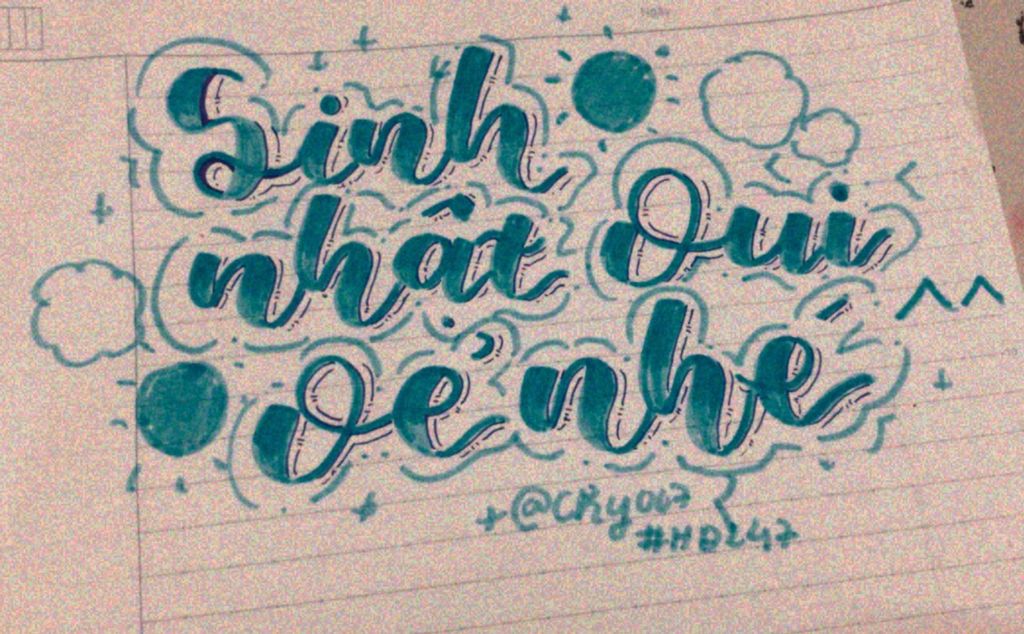 Sinh
nhật vui
vẻ nhé ^^
+@CKyou7
#HD247